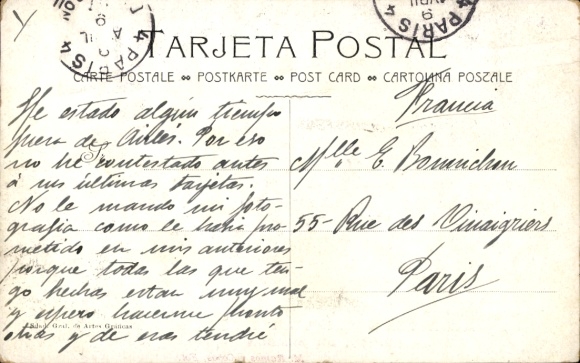 TARJETA POSTAL
CARTE POSTALE POSTKARTE POST CARD CARTOLINA POSZALE
He estado algún tiempo
fuera de Avilés. Por eso
no he contestado antes
á sus últimas tarjetas.
No le mando mi foto-
grafia como le havia pro-
metido en mis anteriores
porque todas las que ten-
go hechas estan muy mal
y espero hacerme pronto
otras y de esas tendré
Francia
Mlle E. Bonnichon
55 - Rue des Vinaigriers
Paris
PARIS 4
AVRIL
PARIS 4
Gral. de Artes Gráficas